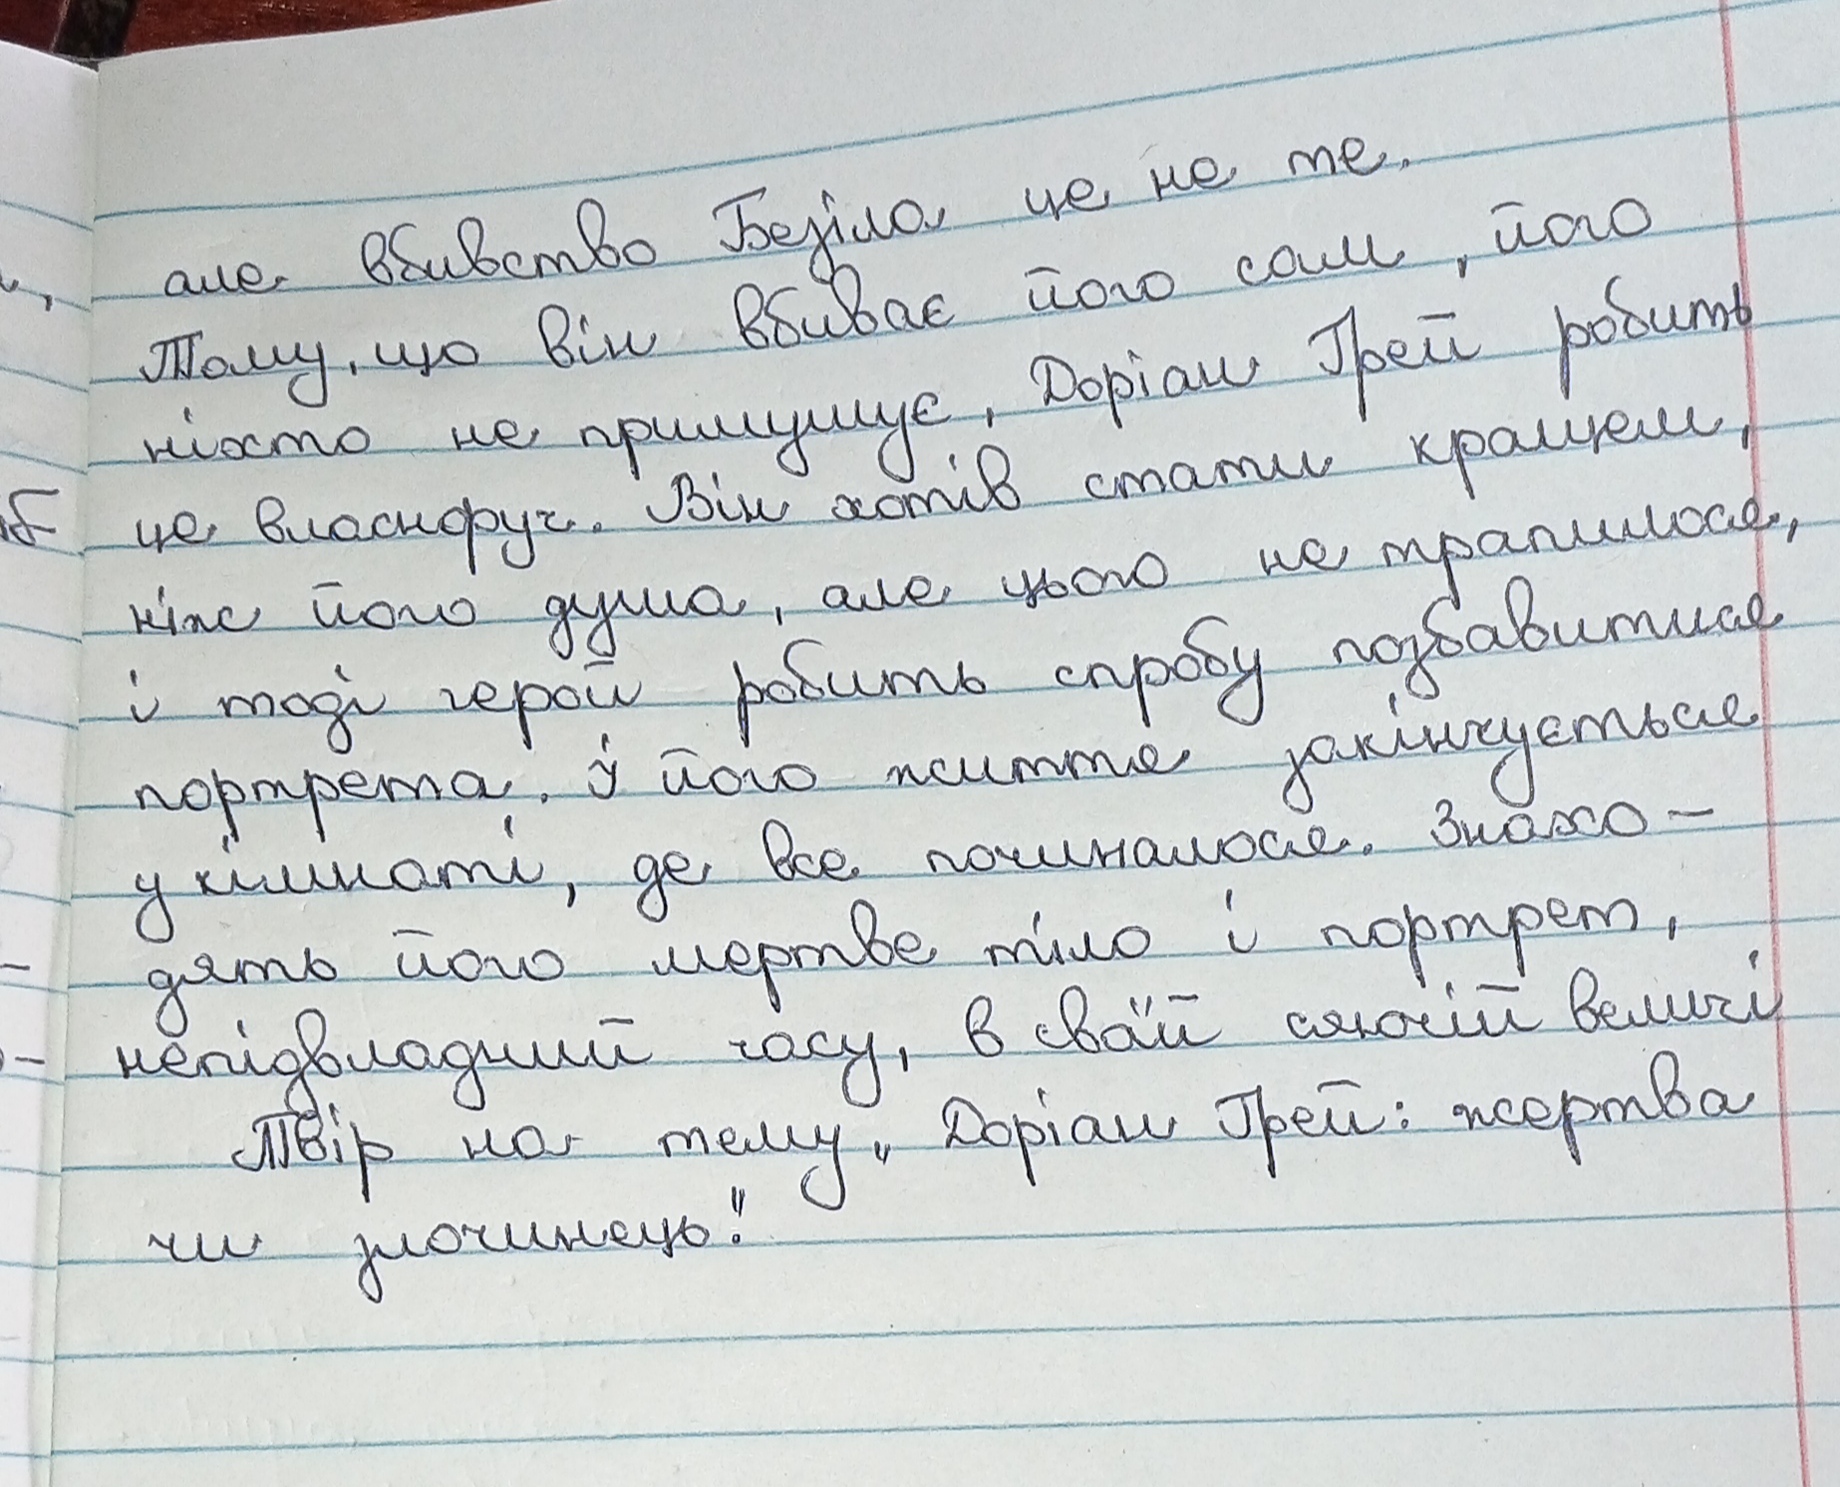 але вбивство Безіла це не те.
Тому, що він вбиває його сам, його
ніхто не примушує, Доріан Грей робить
це власноруч. Він хотів стати кращем,
ніж його душа, але цього не трапилося,
і тоді герой робить спробу позбавитися
портрета. І його життя закінчується
у кімнаті, де все починалося. Знахо-
дять його мертве тіло і портрет,
непідвладний часу, в своїй сяючій величі
Твір на тему „Доріан Грей: жертва
чи злочинець".